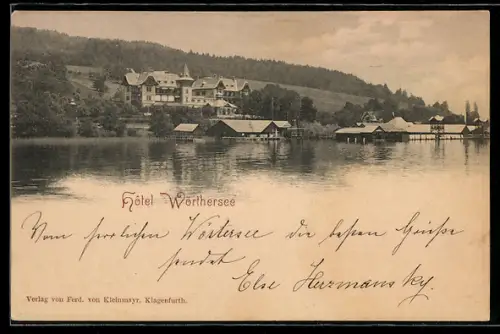 Hôtel Wörthersee
Vom herrlichen Wörtersee die besten Grüsse
sendet
Else Herrmansky.
Verlag von Ferd. von Kleinmayr, Klagenfurth.